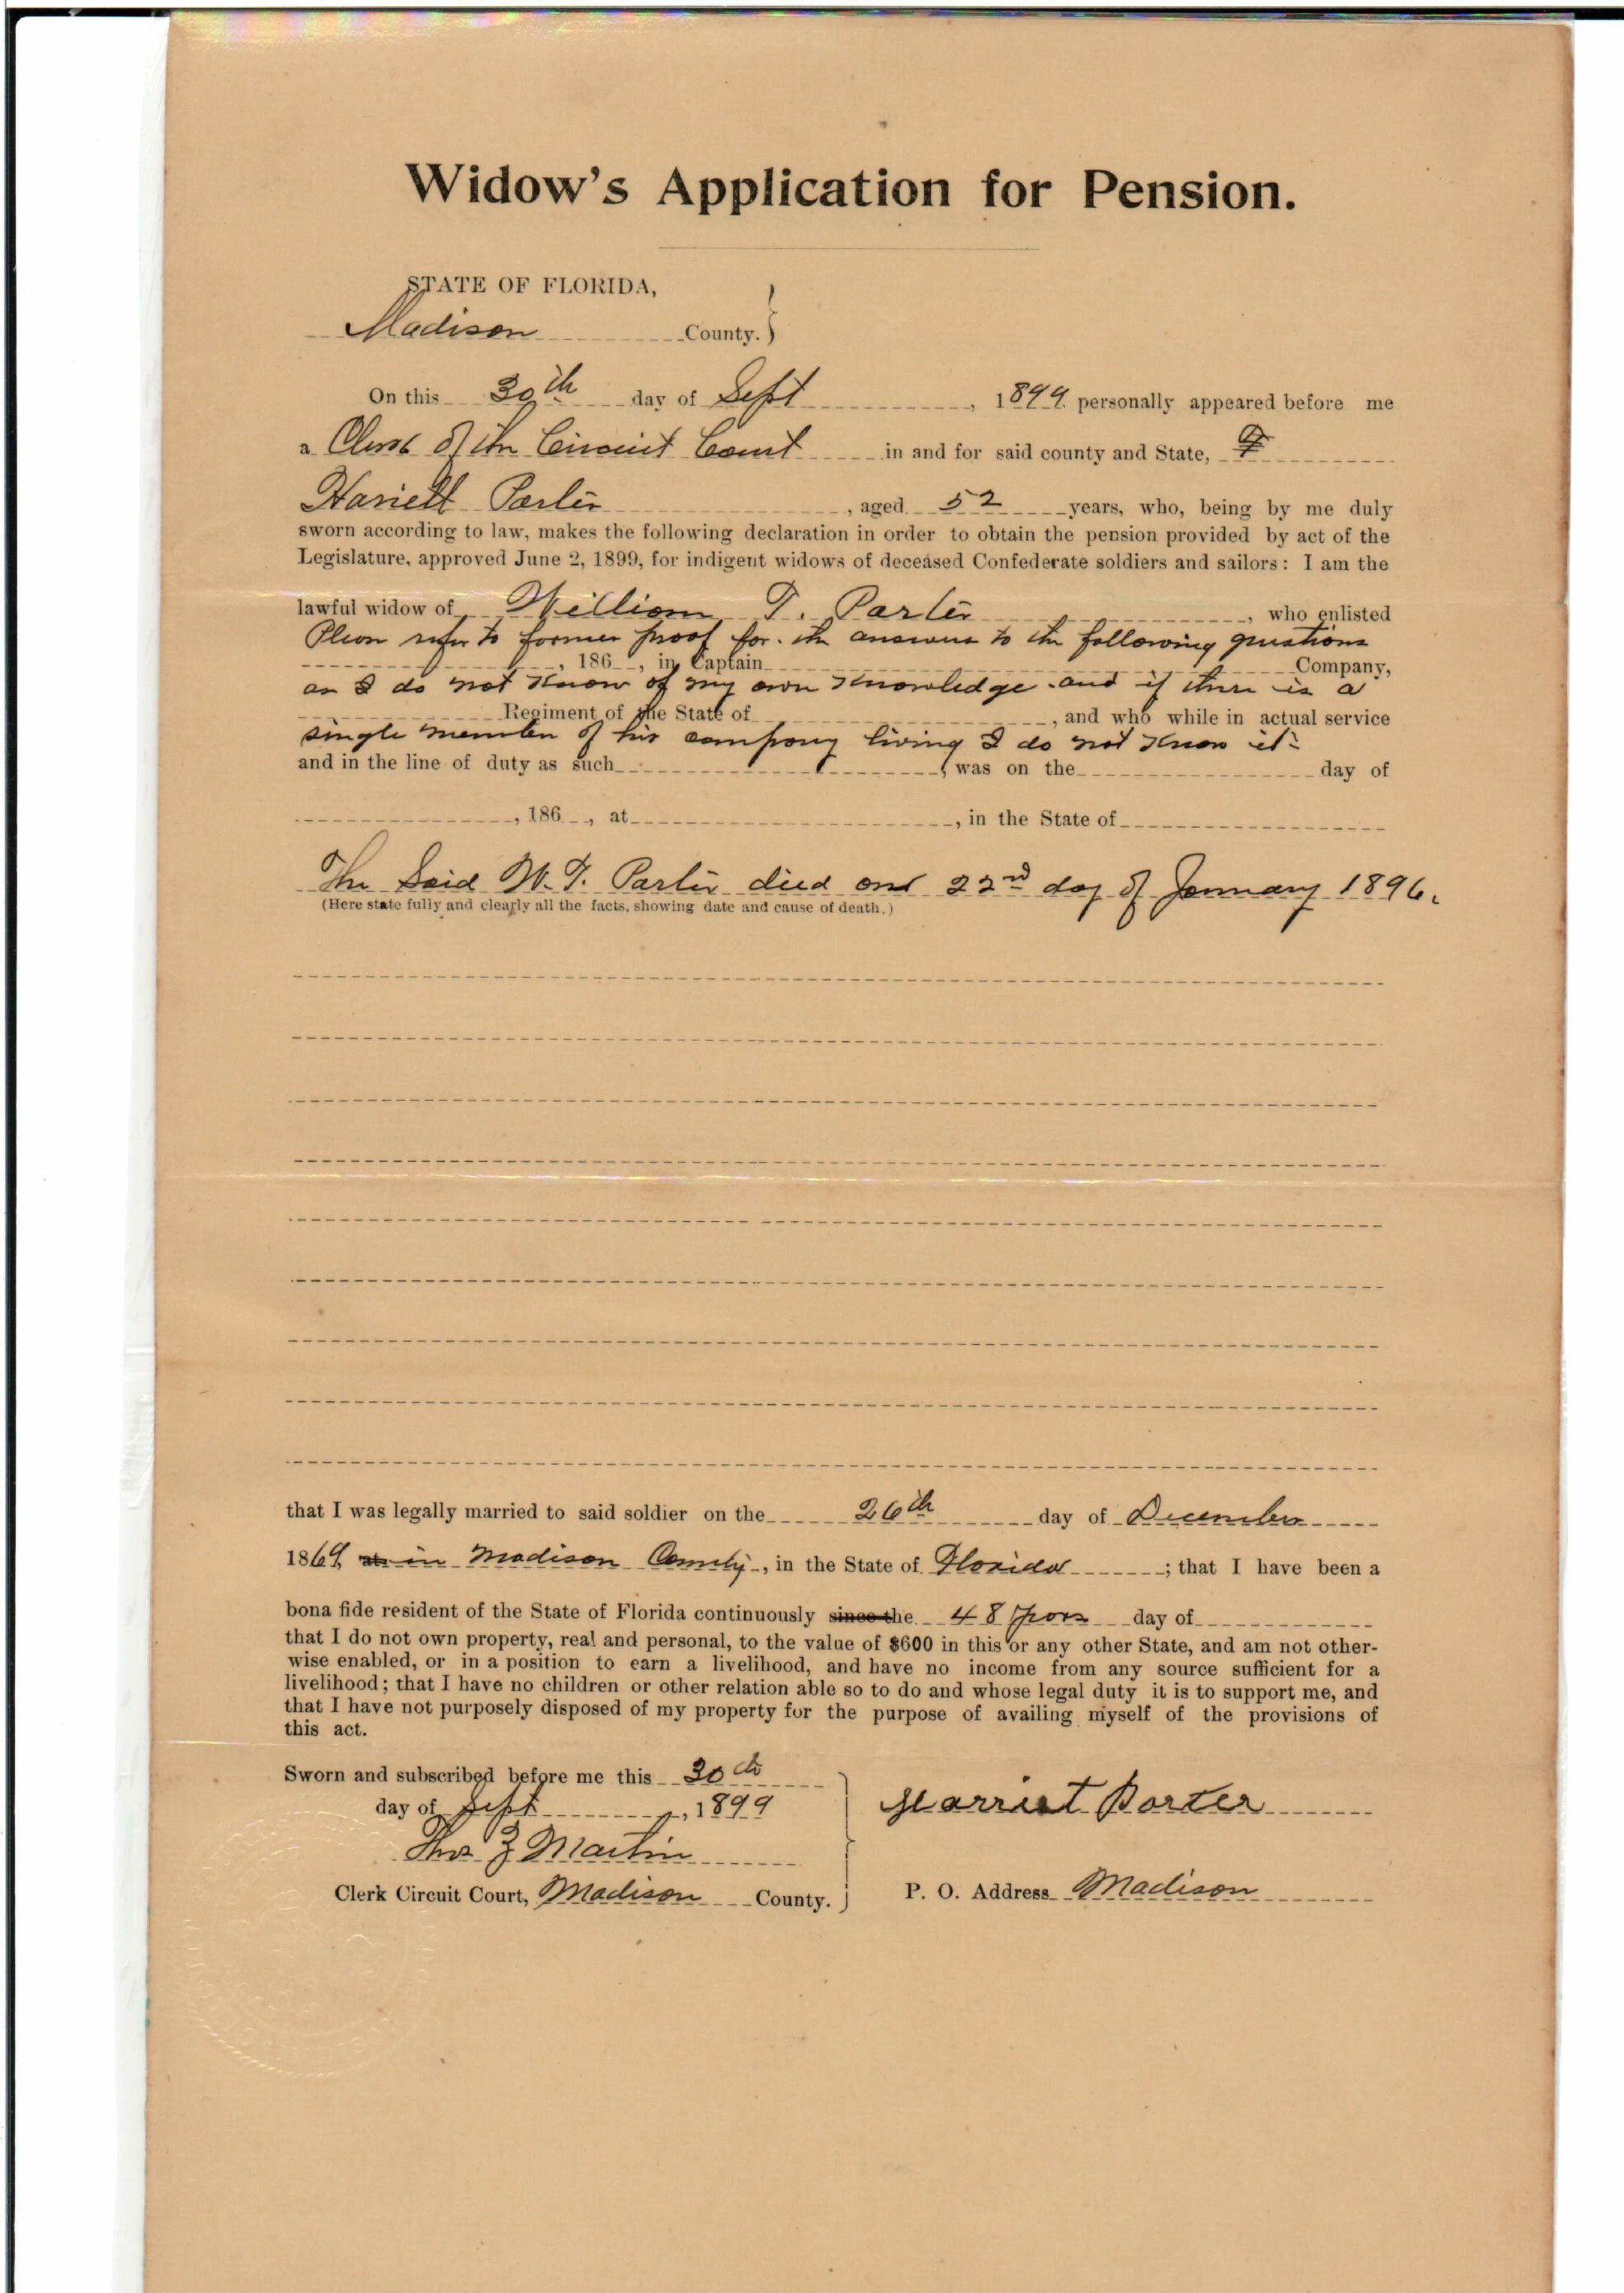 Widow's Application for Pension.
STATE OF FLORIDA,
Madison County.
On this 30th day of Sept, 1899 personally appeared before me
a Clerk of the Circuit Court in and for said county and State,
Hariett Porter, aged 52 years, who, being by me duly
sworn according to law, makes the following declaration in order to obtain the pension provided by act of the
Legislature, approved June 2, 1899, for indigent widows of deceased Confederate soldiers and sailors: I am the
lawful widow of William T. Porter, who enlisted
Please refer to former proof for the answers to the following questions
, 186 , in Captain Company,
as I do not know of my own knowledge and if there is a
Regiment of the State of , and who while in actual service
single member of his company living I do not know it.
and in the line of duty as such , was on the day of
, 186 , at , in the State of
The Said W. T. Porter died on 22nd day of January 1896.
(Here state fully and clearly all the facts, showing date and cause of death.)
that I was legally married to said soldier on the 26th day of December
1869, in Madison County, in the State of Florida; that I have been a
bona fide resident of the State of Florida continuously since the 48 years day of
that I do not own property, real and personal, to the value of $600 in this or any other State, and am not other-
wise enabled, or in a position to earn a livelihood, and have no income from any source sufficient for a
livelihood; that I have no children or other relation able so to do and whose legal duty it is to support me, and
that I have not purposely disposed of my property for the purpose of availing myself of the provisions of
this act.
Sworn and subscribed before me this 30th
day of Sept, 1899
Harriet Porter
Thos Z Martin
Clerk Circuit Court, Madison County.
P. O. Address Madison